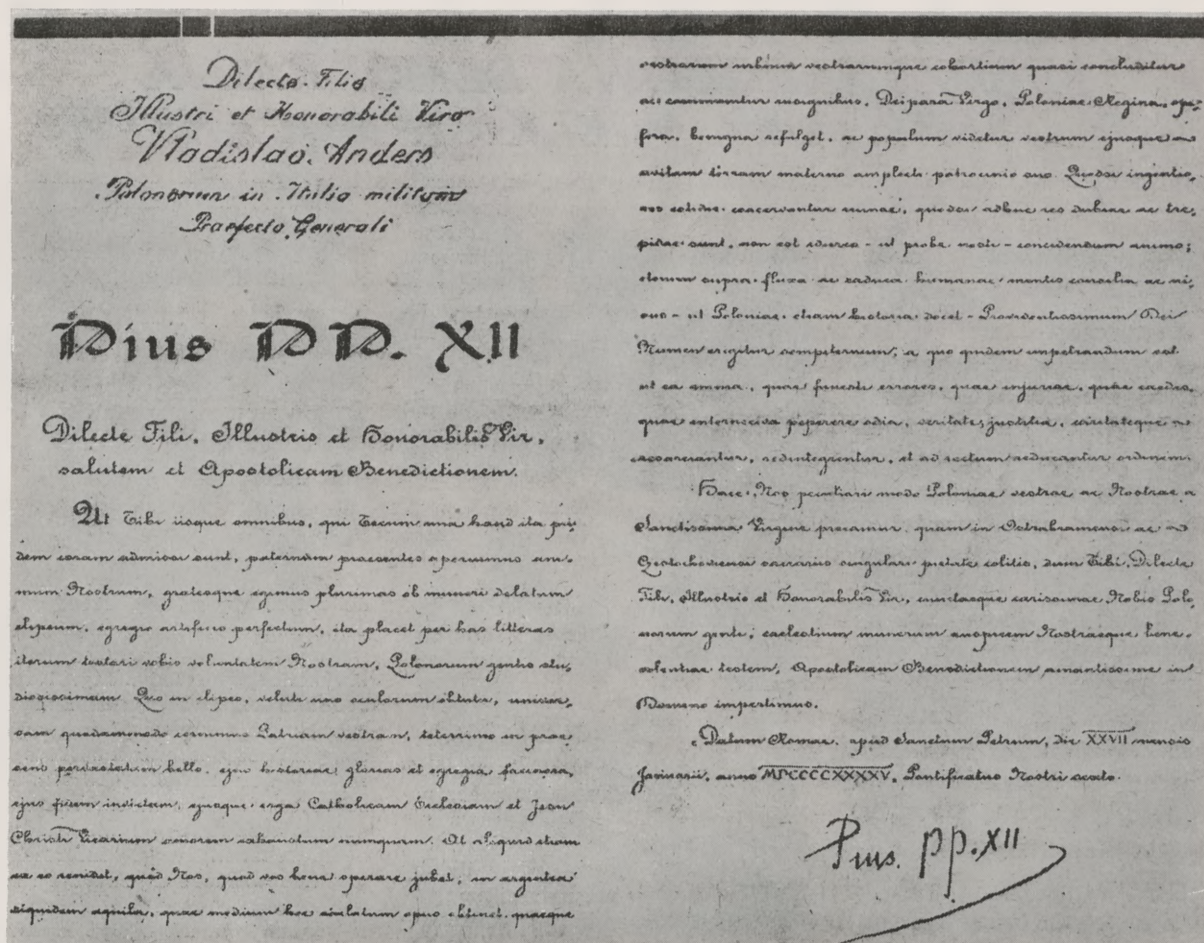 Dilecto Filio
Illustri et Honorabili Viro
Vladislao Anders
Polonorum in Italia militum
Praefecto Generali
Pius PP. XII
Dilecte Fili, Illustris et Honorabilis Vir,
salutem et Apostolicam Benedictionem.
Ut Tibi iisque omnibus, qui Tecum una haud ita pri-
dem coram admissi sunt, paternum praesentes aperuimus ani-
mum Nostrum, gratesque egimus plurimas ob muneri delatum
clipeum, egregio artificio perfectum, ita placet per has litteras
iterum testari vobis voluntatem Nostram, Polonorum gentis stu-
diosissimam. Quo in clipeo, veluti uno oculorum obtutu, univer-
sam quodammodo cernimus Patriam vestram, teterrimo in prae-
sens bello, ejus historiae glorias et egregia facinora,
ejus fidem invictam, ejusque erga Catholicam Ecclesiam et Jesu
Christi Vicarium amorem numquam. At aliquid etiam
ex eo renidet, quod Nos, quod vos bene sperare jubet, in argentea
siquidem aquila, quae medium hoc caelatum opus obtinet, quaeque
vestrarum urbium vestrarumque cohortium quasi concluditur
ac communitur insignibus, Deipara Virgo, Poloniae Regina, opi-
fera, benigna refulget, ac populum videtur vestrum ejusque
avitam terram materno amplecti patrocinio suo. Quodsi ingentes
eos cotidie coacervantur ruinae, quodsi adhuc res dubiae ac tre-
pidae sunt, non est idcirco - ut probe nosti - concidendum animo;
etenim supra fluxa ac caduca humanae mentis consilia ac ni-
sus - ut Poloniae etiam historia docet - Providentissimum Dei
Numen erigitur sempiternum; a quo quidem impetrandum est
ut ea omnia, quae funesti errores, quae injuriae, quae caedes,
quae interneciva peperere odia, veritate, justitia, caritateque
resarciantur, redintegrentur, et ad rectum reducantur ordinem.
Haec Nos peculiari modo Poloniae vestrae ac Nostrae a
Sanctissima Virgine precamur, quam in Ostrabramensi ac
Czestochoviensi sacrariis singulari pietate colitis, dum Tibi, Dilecte
Fili, Illustris et Honorabilis Vir, cunctaeque carissimae Nobis Polo-
norum genti, caelestium munerum auspicem Nostraeque bene-
volentiae testem, Apostolicam Benedictionem amantissime in
Domino impertimus.
Datum Romae, apud Sanctum Petrum, die XXVII mensis
Januarii, anno MDCCCCXXXXV, Pontificatus Nostri sexto.
Pius PP. XII